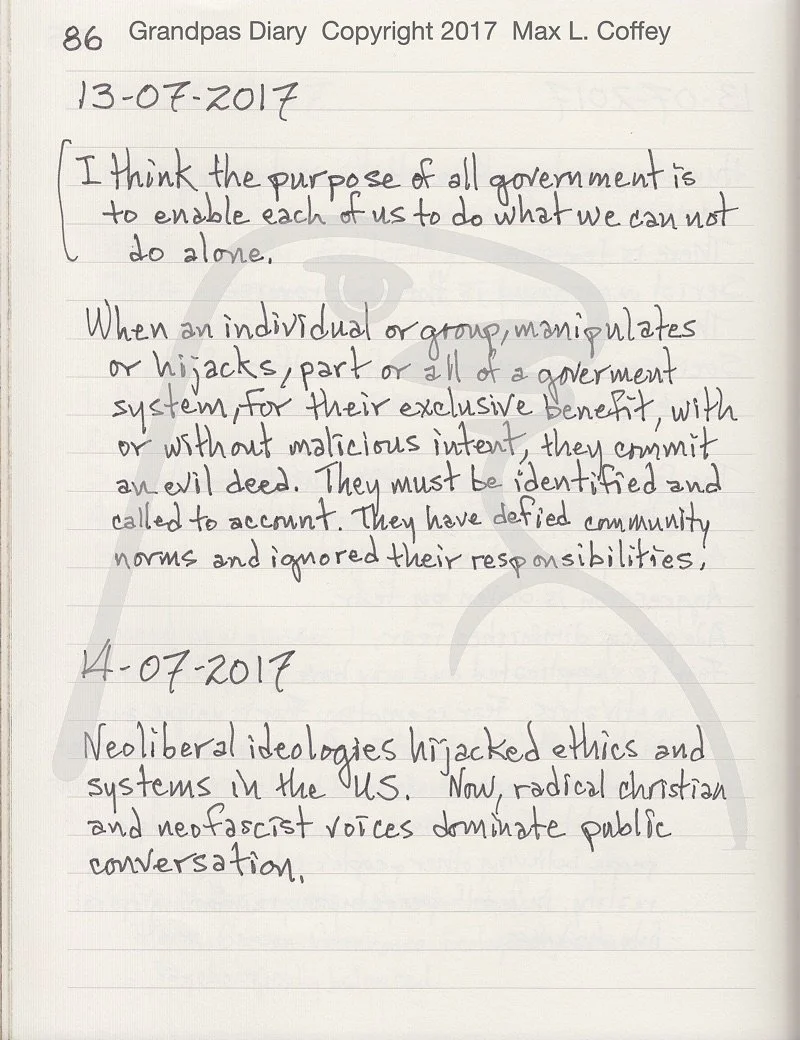 86 Grandpas Diary Copyright 2017 Max L. Coffey
13-07-2017
I think the purpose of all government is
to enable each of us to do what we can not
do alone.
When an individual or group, manipulates
or hijacks, part or all of a goverment
system, for their exclusive benefit, with
or without malicious intent, they commit
an evil deed. They must be identified and
called to account. They have defied community
norms and ignored their responsibilities.
14-07-2017
Neoliberal ideologies hijacked ethics and
systems in the US. Now, radical christian
and neofascist voices dominate public
conversation.